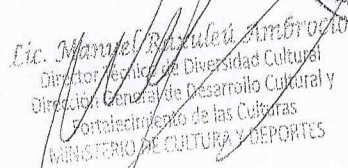 Lic. Manuel Raxuleú Ambrocio
Director Técnico de Diversidad Cultural
Dirección General de Desarrollo Cultural y
Fortalecimiento de las Culturas
MINISTERIO DE CULTURA Y DEPORTES